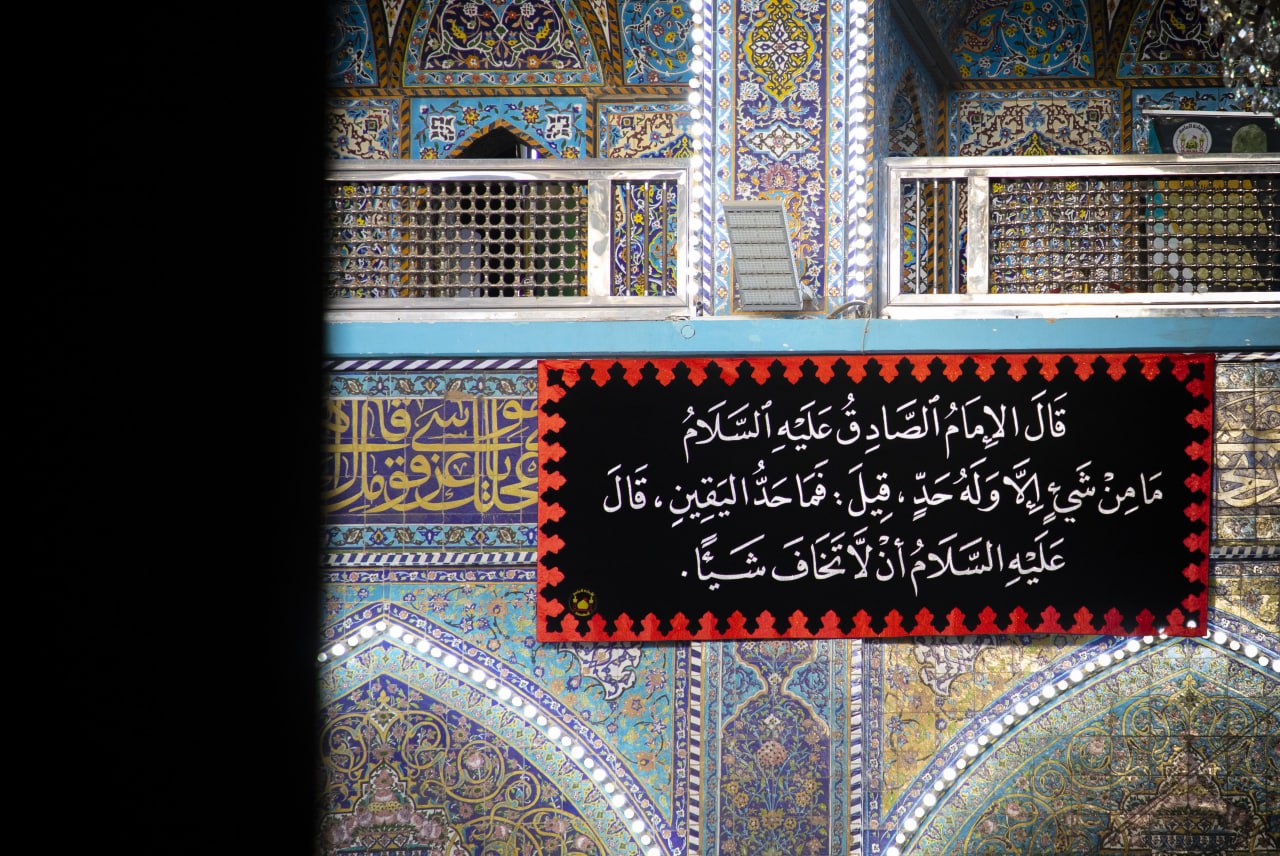 قَالَ الإِمَامُ ٱلصَّادِقُ عَلَيْهِ ٱلسَّلَامُ
مَا مِنْ شَيْءٍ إِلَّا وَلَهُ حَدٌّ ، قِيلَ : فَمَا حَدُّ اليَقِينِ ، قَالَ
عَلَيْهِ السَّلَامُ أَنْ لَّا تَخَافَ شَيْئًا .